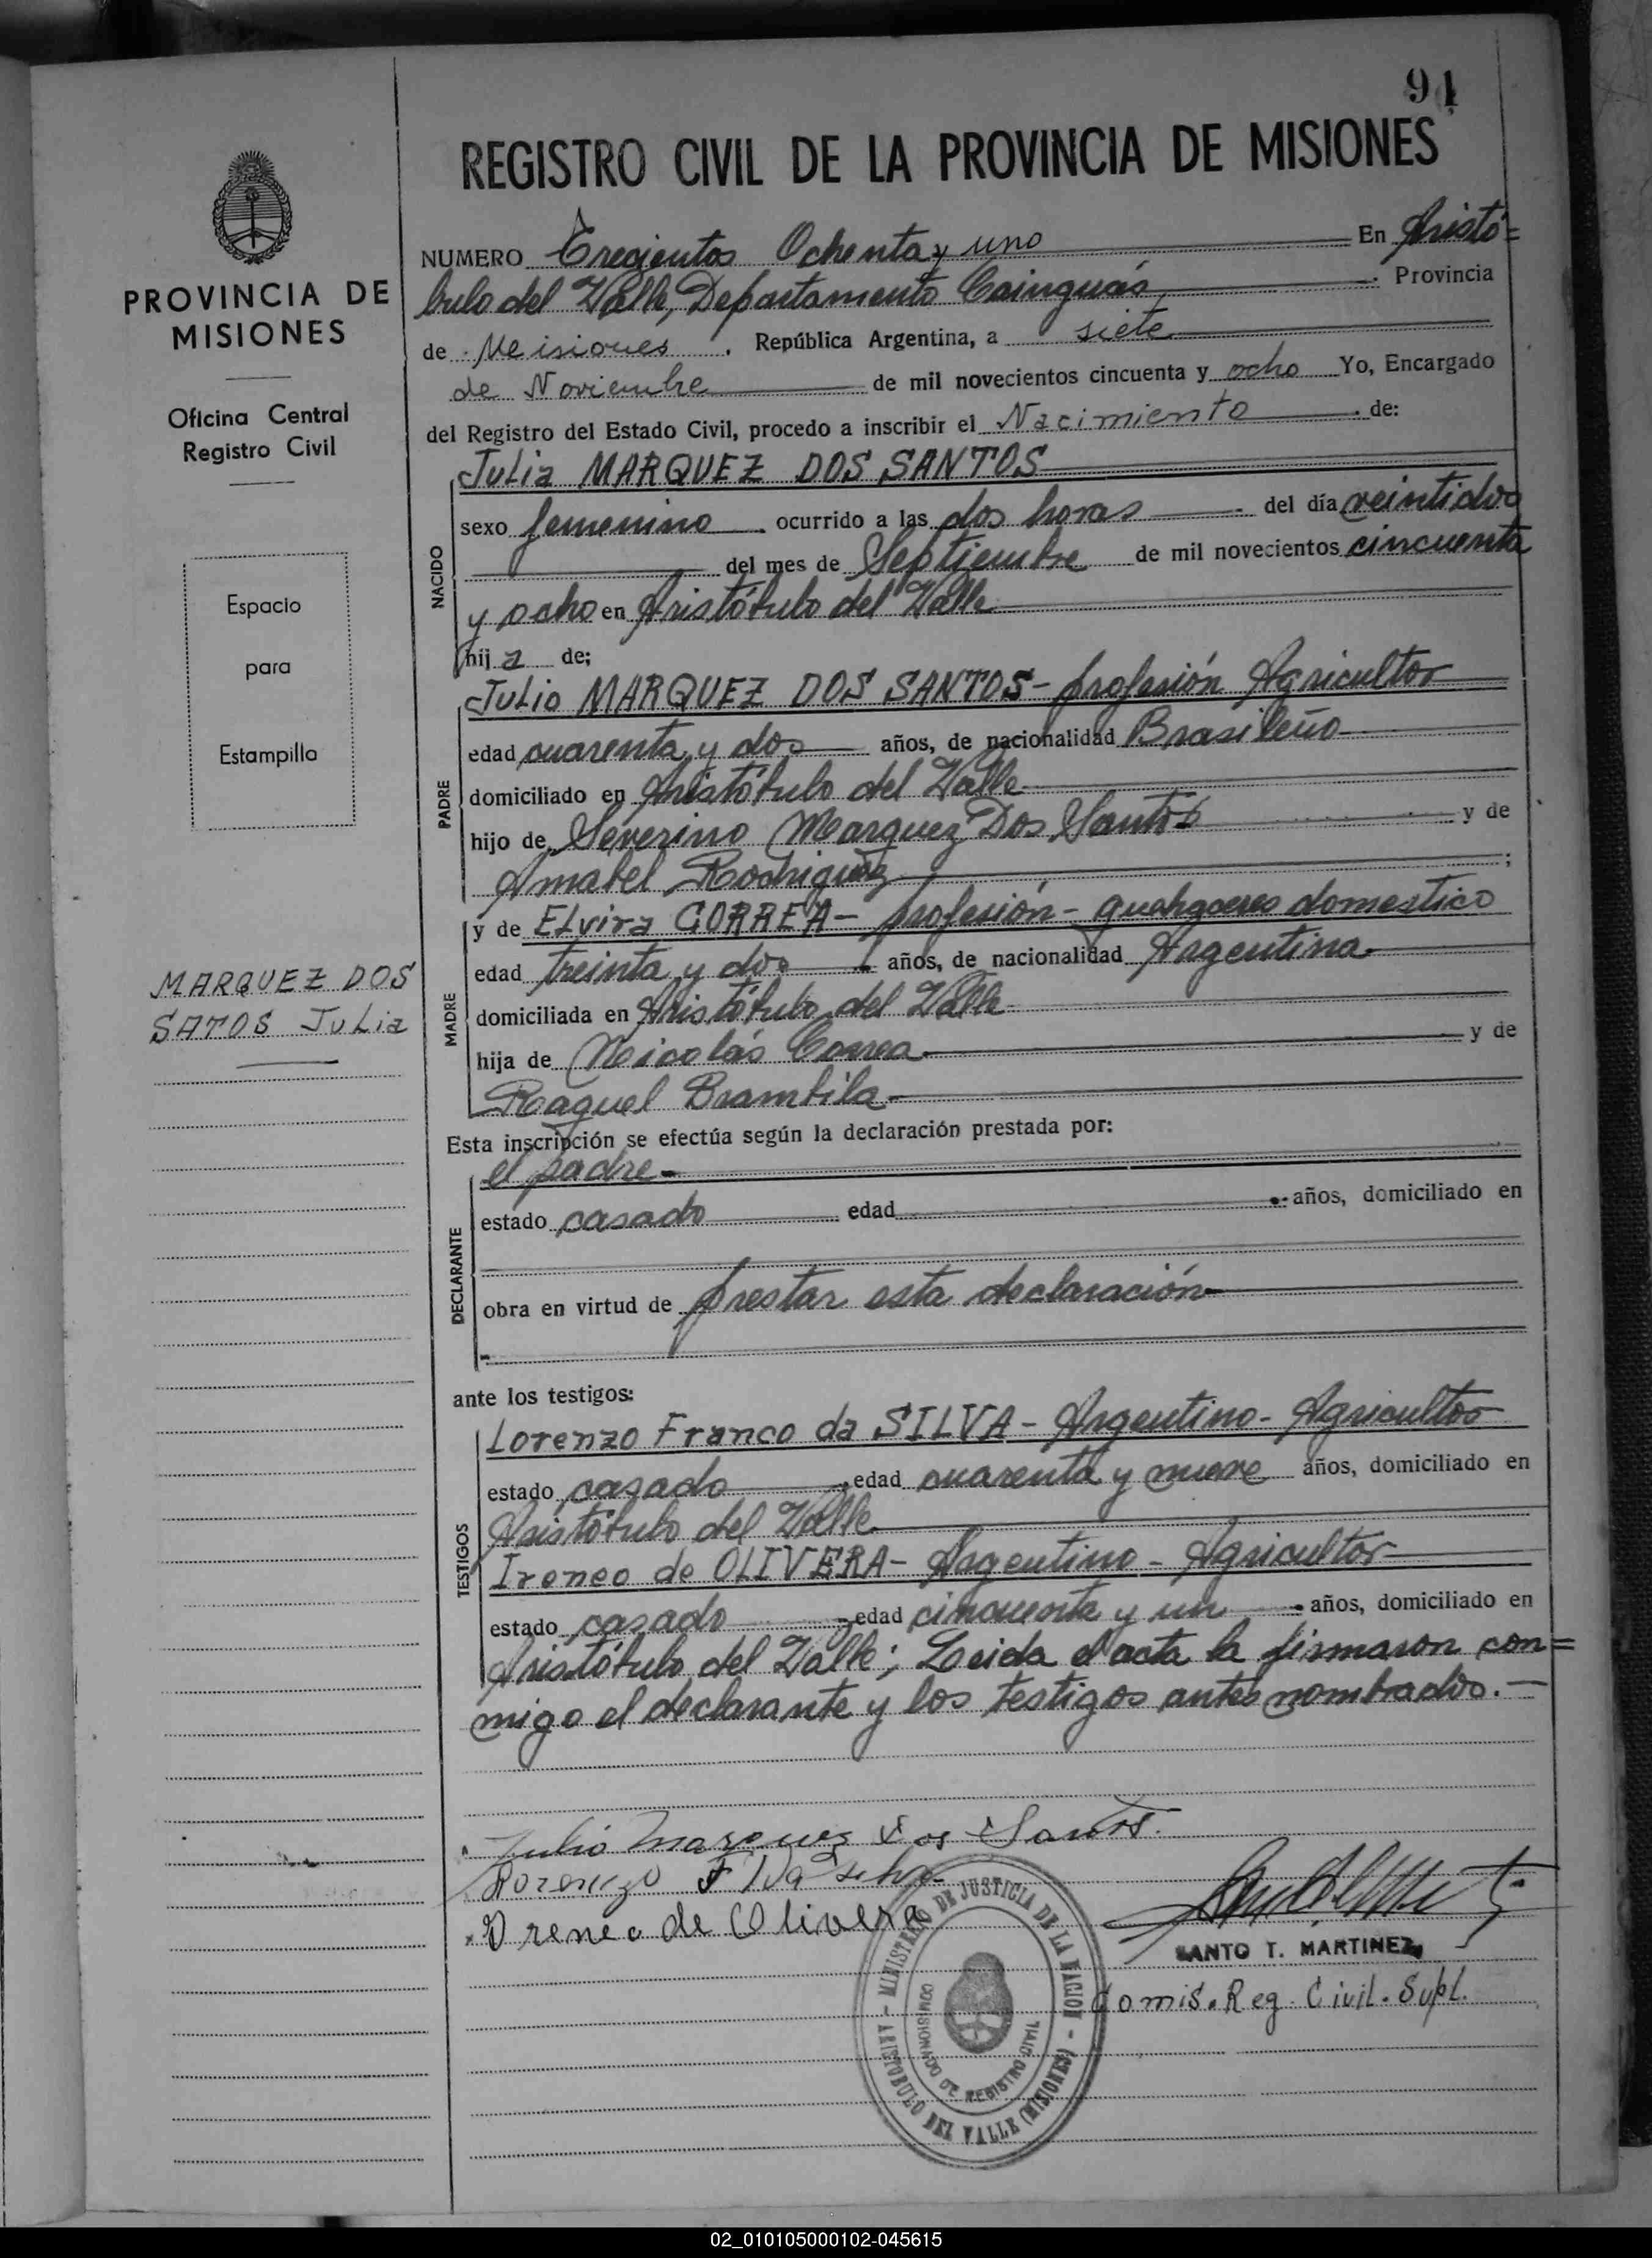 94
REGISTRO CIVIL DE LA PROVINCIA DE MISIONES
PROVINCIA DE
MISIONES
Oficina Central
Registro Civil
Espacio
para
Estampilla
MARQUEZ DOS
SATOS Julia
NUMERO Trecientos Ochenta y uno En Aristó=
bulo del Valle, Departamento Cainguás. Provincia
de Misiones. República Argentina, a siete
de Noviembre de mil novecientos cincuenta y ocho Yo, Encargado
del Registro del Estado Civil, procedo a inscribir el Nacimiento de:
NACIDO
Julia MARQUEZ DOS SANTOS
sexo femenino ocurrido a las dos horas del día veintidos
del mes de Septiembre de mil novecientos cincuenta
y ocho en Aristóbulo del Valle
hija de;
PADRE
Julio MARQUEZ DOS SANTOS - profesión Agricultor
edad cuarenta y dos años, de nacionalidad Brasileño
domiciliado en Aristóbulo del Valle
hijo de Severino Marquez Dos Santos y de
Amabel Rodriguez ;
MADRE
y de Elvira CORREA - profesión - quehaceres domestico
edad treinta y dos años, de nacionalidad Argentina
domiciliada en Aristóbulo del Valle
hija de Nicolás Correa y de
Raquel Brambila
Esta inscripción se efectúa según la declaración prestada por:
DECLARANTE
el padre
estado casado edad años, domiciliado en
obra en virtud de prestar esta declaración
ante los testigos:
TESTIGOS
Lorenzo Franco da SILVA - Argentino - Agricultor
estado casado, edad cuarenta y nueve años, domiciliado en
Aristóbulo del Valle
Ireneo de OLIVERA - Argentino - Agricultor
estado casado, edad cincuenta y un años, domiciliado en
Aristóbulo del Valle; Leida el acta la firmaron con=
migo el declarante y los testigos antes nombrados. -
Julio Marques dos Santos.
Lorenzo F da silva
Ireneo de Olivera
MINISTERIO DE JUSTICIA DE LA NACION - ARISTOBULO DEL VALLE (MISIONES) -
COMISIONADO DE REGISTRO CIVIL
SANTO T. MARTINEZ
Comis. Reg. Civil. Supl.
02_010105000102-045615